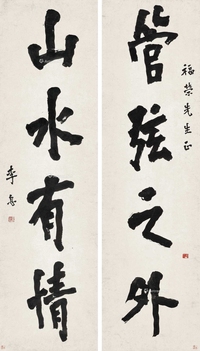 福榮先生正
管弦之外
山水有情
李息